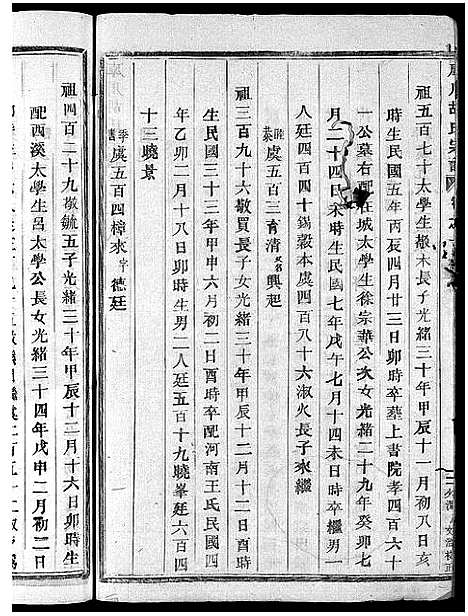 祖五百七十太學生敬木長子光緒三十年甲辰十一月初八日亥
時生民國五年丙辰四月廿三日卯時卒葬上書院孝四百六十
一公墓右配城太學生徐宗華公次女光緒二十九年癸卯七
月二十四日未時生民國七年戊午七月十四未日時卒繼男一
人廷四百四十錫穀本虞四百八十六淑火長子來繼
虞五百三育清 又名 興起
祖三百七十六敬買長子女光緒三十年甲辰十二月十二日酉時
生民國三十三年甲申六月初二日酉時卒配河南王氏民國四
年乙卯二月十八日卯時生男二人廷五百十九曉峯廷六百四
十三曉景
季 虞五百四樟來 字 德廷
祖四百二十九敬毓五子光緒三十年甲辰十二月十六日卯時生
配西溪太學生呂太學公長女光緒三十四年戊申二月初二日